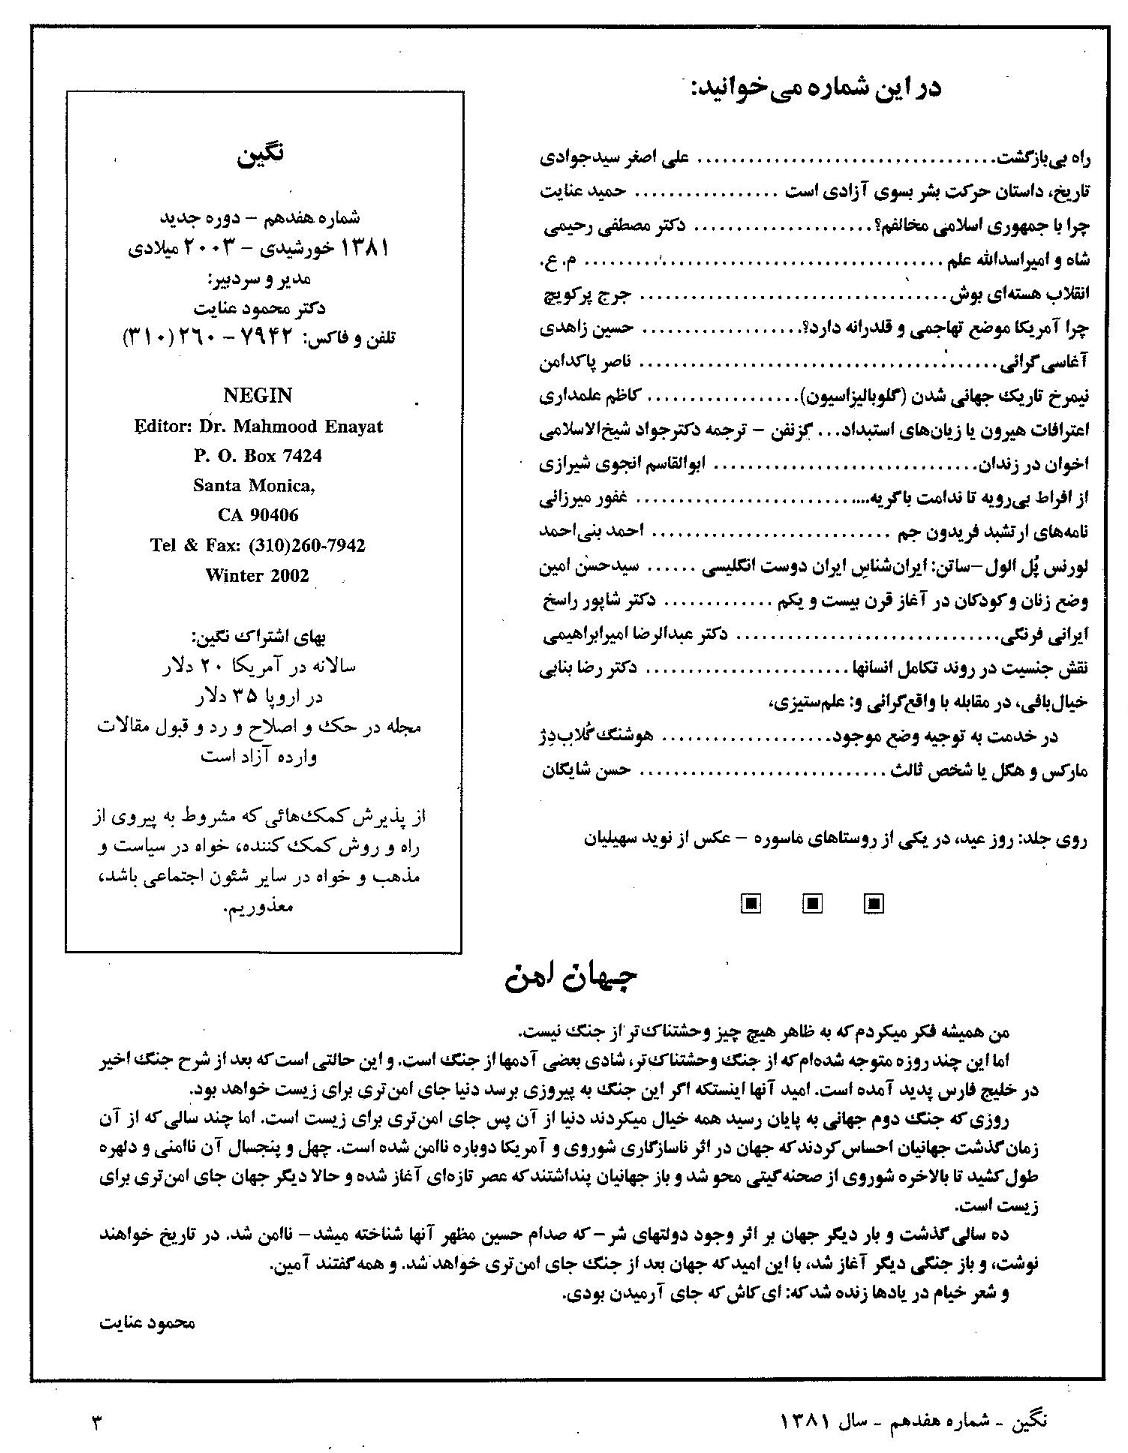 در این شماره می‌خوانید:
راه بی‌بازگشت................................ علی اصغر سیدجوادی
تاریخ، داستان حرکت بشر بسوی آزادی است ................ حمید عنایت
چرا با جمهوری اسلامی مخالفم؟.................... دکتر مصطفی رحیمی
شاه و امیراسدالله علم ........................................ م. ع.
انقلاب هسته‌ای بوش.................................. جرج پرکویچ
چرا آمریکا موضع تهاجمی و قلدرانه دارد؟.................. حسین زاهدی
آغاسی گرائی........................................ ناصر پاکدامن
نیمرخ تاریک جهانی شدن (گلوبالیزاسیون)................. کاظم علمداری
اعترافات هیرون یا زیان‌های استبداد... گزنفن – ترجمه دکترجواد شیخ‌الاسلامی
اخوان در زندان............................. ابوالقاسم انجوی شیرازی
از افراط بی‌رویه تا ندامت باگریه............................ غفور میرزائی
نامه‌های ارتشبد فریدون جم .......................... احمد بنی‌احمد
لورنس پُل الول–ساتن: ایران‌شناسِ ایران دوست انگلیسی ...... سیدحسن امین
وضع زنان و کودکان در آغاز قرن بیست و یکم ............ دکتر شاپور راسخ
ایرانی فرنگی............................. دکتر عبدالرضا امیرابراهیمی
نقش جنسیت در روند تکامل انسانها....................... دکتر رضا بنایی
خیال‌بافی، در مقابله با واقع‌گرائی و: علم‌ستیزی،
در خدمت به توجیه وضع موجود................... هوشنگ گُلاب‌دِژ
مارکس و هگل یا شخص ثالث ............................ حسن شایگان
روی جلد: روز عید، در یکی از روستاهای ماسوره – عکس از نوید سهیلیان
نگین
شماره هفدهم – دوره جدید
۱۳۸۱ خورشیدی – ۲۰۰۳ میلادی
مدیر و سردبیر:
دکتر محمود عنایت
تلفن و فاکس: ۷۹۴۲ – ۲۶۰(۳۱۰)
NEGIN
Editor: Dr. Mahmood Enayat
P. O. Box 7424
Santa Monica,
CA 90406
Tel & Fax: (310)260-7942
Winter 2002
بهای اشتراک نگین:
سالانه در آمریکا ۲۰ دلار
در اروپا ۳۵ دلار
مجله در حک و اصلاح و رد و قبول مقالات
وارده آزاد است
از پذیرش کمک‌هائی که مشروط به پیروی از
راه و روش کمک کننده، خواه در سیاست و
مذهب و خواه در سایر شئون اجتماعی باشد،
معذوریم.
جهان امن
من همیشه فکر میکردم که به ظاهر هیچ چیز وحشتناک‌تر از جنگ نیست.
اما این چند روزه متوجه شده‌ام که از جنگ وحشتناک‌تر، شادی بعضی آدمها از جنگ است. و این حالتی است که بعد از شرح جنگ اخیر
در خلیج فارس پدید آمده است. امید آنها اینستکه اگر این جنگ به پیروزی برسد دنیا جای امن‌تری برای زیست خواهد بود.
روزی که جنگ دوم جهانی به پایان رسید همه خیال میکردند دنیا از آن پس جای امن‌تری برای زیست است. اما چند سالی که از آن
زمان گذشت جهانیان احساس کردند که جهان در اثر ناسازگاری شوروی و آمریکا دوباره ناامن شده است. چهل و پنجسال آن ناامنی و دلهره
طول کشید تا بالاخره شوروی از صحنه گیتی محو شد و باز جهانیان پنداشتند که عصر تازه‌ای آغاز شده و حالا دیگر جهان جای امن‌تری برای
زیست است.
ده سالی گذشت و بار دیگر جهان بر اثر وجود دولتهای شر – که صدام حسین مظهر آنها شناخته میشد – ناامن شد. در تاریخ خواهند
نوشت، و باز جنگی دیگر آغاز شد، با این امید که جهان بعد از جنگ جای امن‌تری خواهد شد. و همه گفتند آمین.
و شعر خیام در یادها زنده شد که: ای کاش که جای آرمیدن بودی.
محمود عنایت
نگین – شماره هفدهم – سال ۱۳۸۱
۳